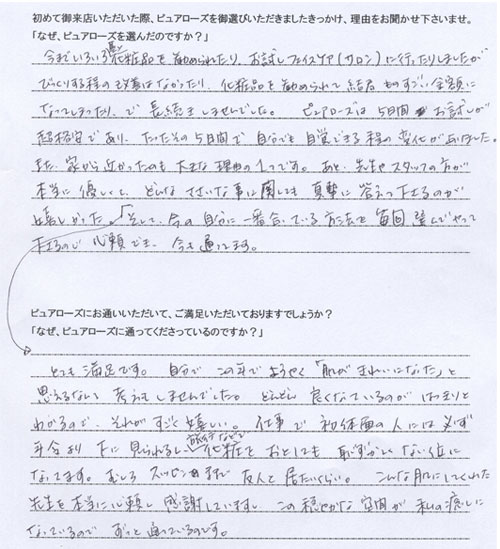 初めて御来店いただいた際、ピュアローズを御選びいただきましたきっかけ、理由をお聞かせ下さいませ。
「なぜ、ピュアローズを選んだのですか？」
今までいろいろ化粧品を勧められたり、お試しフェイスケア(サロン)に行ったりしましたが
びっくりする程の改善はなかったり、化粧品を勧められて結局ものすごい金額に
なってしまったり、で長続きしませんでした。ピュアローズは5日間お試しが
超格安であり、たったその5日間で自分でも自覚できる程の変化がありました。
また、家から近かったのも大きな理由の1つです。あと、先生やスタッフの方が
本当に優しくて、どんなささいな事に関しても真摯に答えて下さるのが
嬉しかった。そして、今の自分に一番合っている方法を毎回選んでやって
下さるので信頼でき、今も通ってます。
ピュアローズにお通いいただいて、ご満足いただいておりますでしょうか？
「なぜ、ピュアローズに通ってくださっているのですか？」
とても満足です。自分でこの年でようやく「肌がきれいになった」と
思えるなんて考えもしませんでした。どんどん良くなっているのがはっきりと
わかるので、それがすごく嬉しい。仕事で初体面の人には必ず
年令より下に見られるし、旅行などで化粧をおとしても恥ずかしくない位に
なってます。むしろスッピンで友人と居たいくらい。こんな肌にしてくれた
先生を本当に信頼し感謝しています。この穏やかな空間が私の癒しに
なっているのでずっと通っているのです。